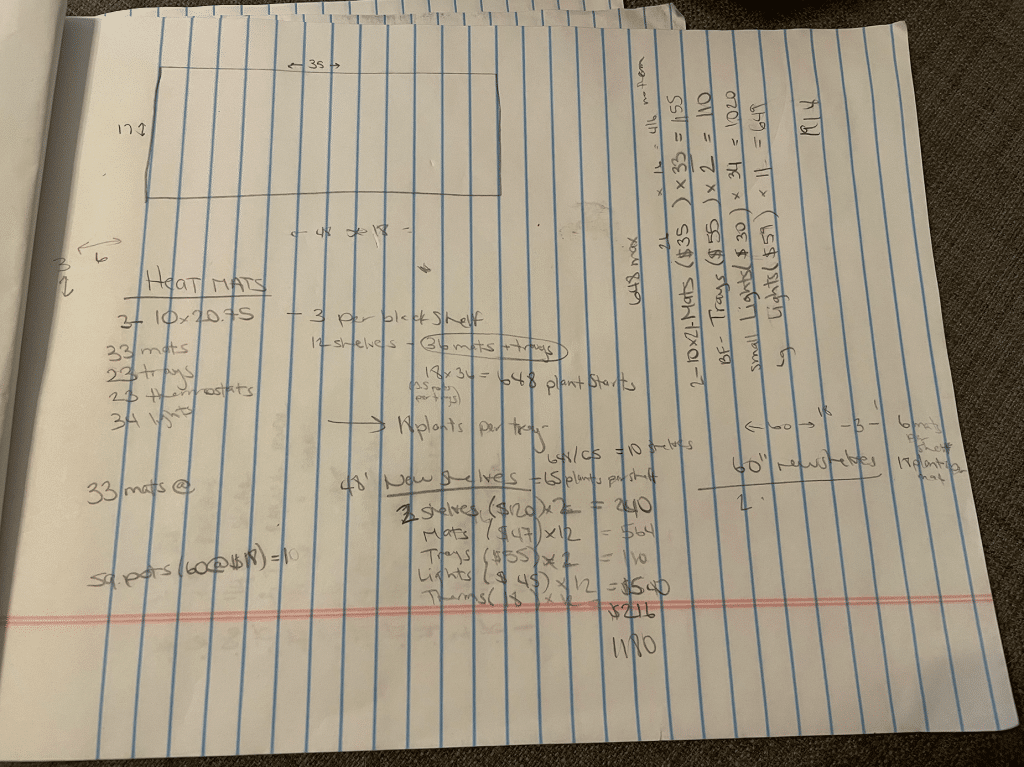 ← 35 →
17
← 48 x 18 =
6
HEAT MATS
2- 10x20.75 - 3 per black shelf
33 mats
12 shelves - 36 mats + trays
23 trays
18x36 = 648 plant starts
23 thermostats
34 lights
→ 18 plants per tray
648/65 = 10 shelves
33 mats @
48' New Shelves = 65 plants per shelf
2 shelves ($120) x 2 = 240
Mats ($47) x 12 = 564
Trays ($55) x 2 = 110
Lights ($45) x 12 = $540
Therms( 8 ) x 12
$216
1180
sq. pots (60@$18) = 10
648 max
26 x 16 = 416
2-10x21-Mats ($35 ) x 33 = 155
BF- Trays ($55) x 2 = 110
small Lights ($30) x 34 = 1020
Lg Lights ($59) x 11 = 649
1914
← 60 → 18 -3-
60" new shelves
2
6 mats
per
shelf
18 plants per
mat